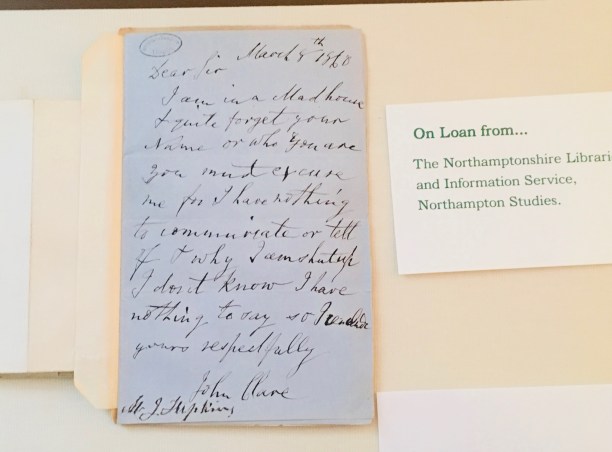 March 8th 1860
Dear Sir
I am in a Madhouse
& quite forget your
Name or who you are
you must excuse
me for I have nothing
to communicate or tell
of & why I am shut up
I dont know I have
nothing to say so I conclude
yours respectfully
John Clare
Mr J. Hopkins
On Loan from...
The Northamptonshire Librari
and Information Service,
Northampton Studies.